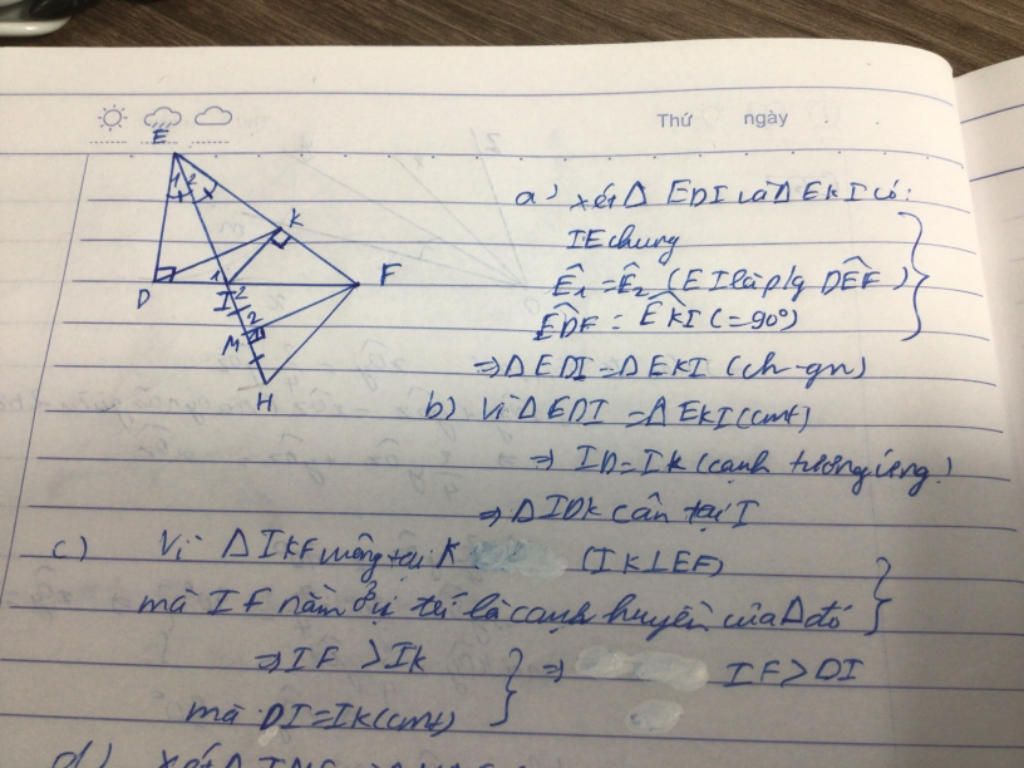 Thứ ngày
E
1 2
K
D
1
F
I 2
2
M
H
a) xét Δ EDI và Δ EKI có:
IE chung
Ê₁ = Ê₂ (EI là p/g DÊF)
EDF = EKI (= 90°)
⇒ Δ EDI = Δ EKI (ch - gn)
b) Vì Δ EDI = Δ EKI (cmt)
⇒ ID = IK (cạnh tương ứng)
⇒ Δ IDK cân tại I
c) Vì Δ IKF vuông tại K (IK ⊥ EF)
mà IF nằm ở vị trí là cạnh huyền của Δ đó
⇒ IF > IK
⇒ IF > DI
mà DI = IK (cmt)
d) xét Δ